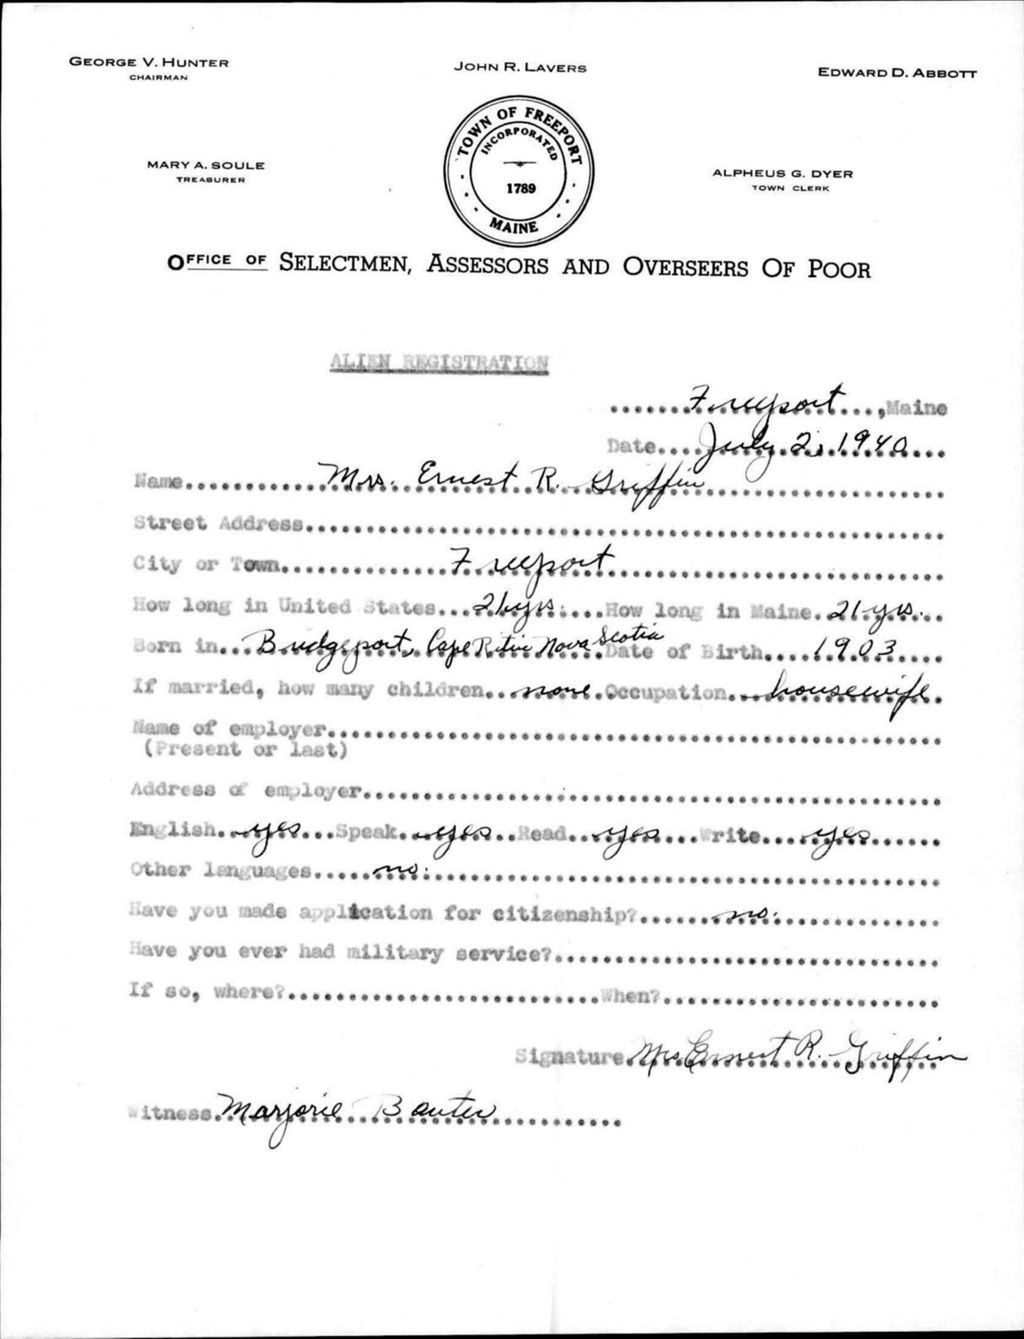 GEORGE V. HUNTER
CHAIRMAN
JOHN R. LAVERS
EDWARD D. ABBOTT
TOWN OF FREEPORT
INCORPORATED
1789
MAINE
MARY A. SOULE
TREASURER
ALPHEUS G. DYER
TOWN CLERK
OFFICE OF SELECTMEN, ASSESSORS AND OVERSEERS OF POOR
ALIEN REGISTRATION
Freeport, Maine
Date July 2, 1940
Name Mrs. Ernest R. Griffin
Street Address
City or Town Freeport
How long in United States 21 yrs. How long in Maine 21 yrs.
Born in Bridgeport, Cape Nova Scotia Date of Birth 1903
If married, how many children none Occupation housewife
Name of employer
(Present or last)
Address of employer
English yes Speak yes Read yes Write yes
Other languages no.
Have you made application for citizenship? no.
Have you ever had military service?
If so, where? When?
Signature Mrs Ernest R. Griffin
Witness Marjorie Baxter